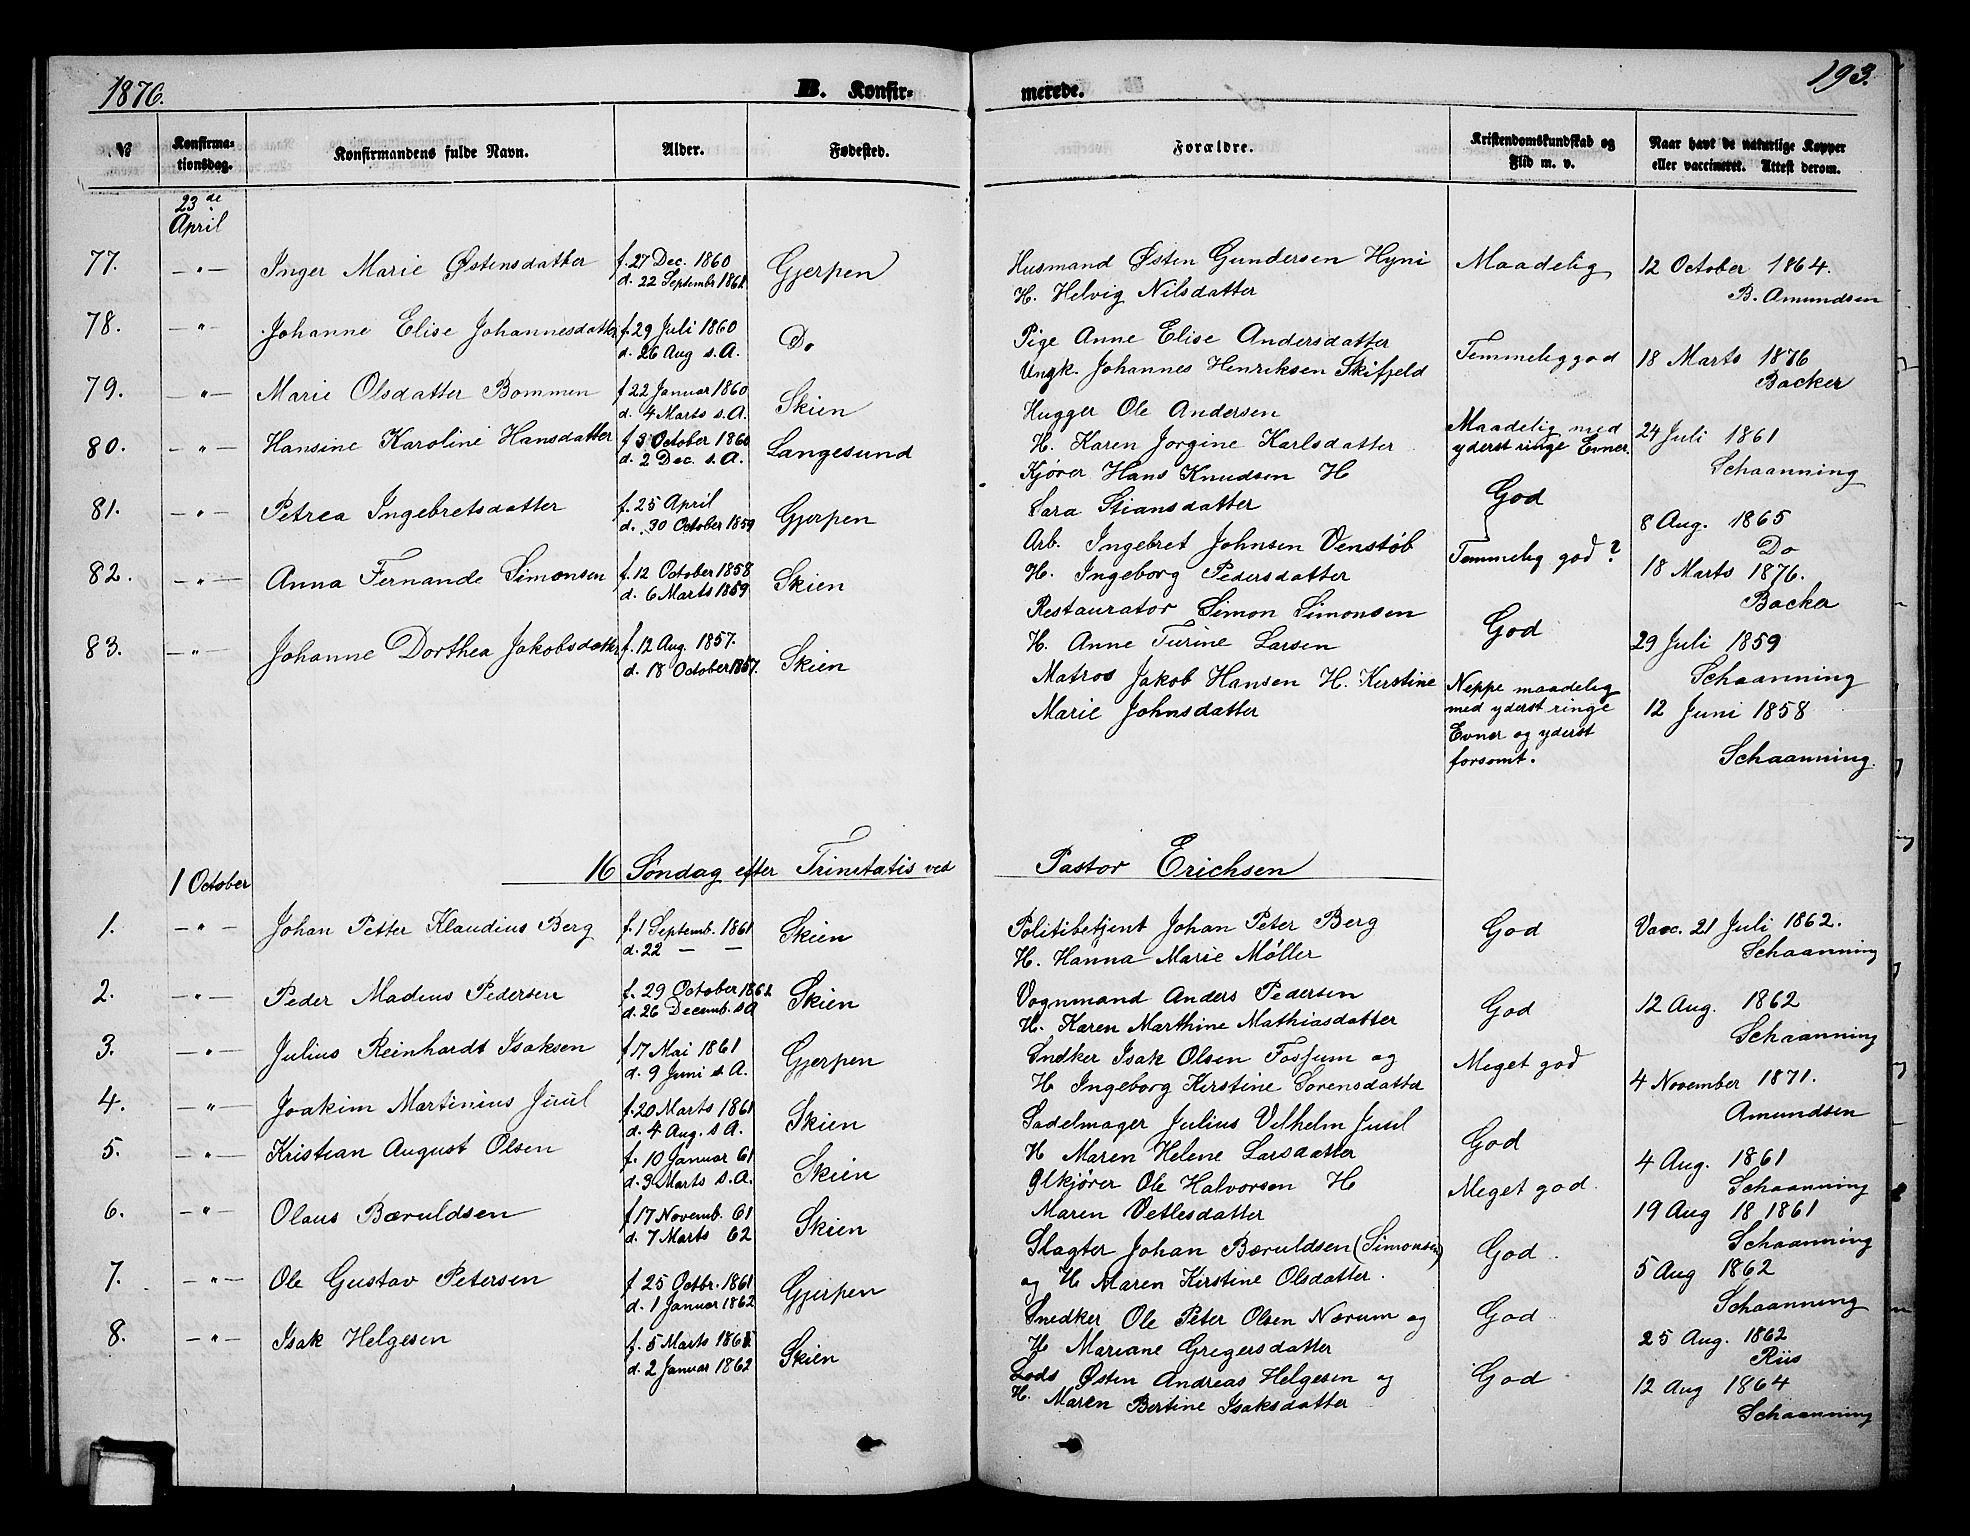 1876.
B. Konfir-
merede.
193.
№
Konfirma-
tionsdag.
Konfirmandens fulde Navn.
Alder.
Fødested.
Forældre.
Kristendomskundskab og
Flid m. v.
Naar havt de naturlige Kopper
eller vaccineret. Attest derom.
23de
April
77. — " — Inger Marie Østensdatter f. 27 Dec. 1860 Gjerpen Husmand Østen Gundersen Hyni Maadelig 12 October 1864.
d. 22 Septembr 1861 H. Helvig Nilsdatter B. Amundsen
78. — " — Johanne Elise Johannesdatter f. 29 Juli 1860 Do Pige Anne Elise Andersdatter Temmelig god 18 Marts 1876
d. 26 Aug s. A. Ungk. Johannes Henriksen Skifjeld Backer
79. — " — Marie Olsdatter Bommen f 22 Januar 1860 Skien Hugger Ole Andersen Maadelig med 24 Juli 1861
d. 4 Marts s. A. H. Karen Jorgine Karlsdatter yderst ringe Evner. Schaanning
80. — " — Hansine Karoline Hansdatter f 3 October 1860 Langesund Kjører Hans Knudsen H God 8 Aug. 1865
d. 2 Dec. s. A. Sara Stiansdatter Do
81. — " — Petrea Ingebretsdatter f. 25 April Gjerpen Arb. Ingebret Johnsen Venstøb Temmelig god? 18 Marts 1876.
d. 30 October 1859 H. Ingeborg Pedersdatter Backer
82. — " — Anna Fernande Simonsen f. 12 October 1858 Skien Restaurator Simon Simonsen God 29 Juli 1859
d. 6 Marts 1859 H. Anne Turine Larsen Schaanning
83. — " — Johanne Dorthea Jakobsdatter f. 12 Aug. 1857. Skien Matros Jakob Hansen H. Kirstine Neppe maadelig 12 Juni 1858
d. 18 October 1857. Marie Johnsdatter med yderst ringe Schaanning.
Evner og yderst
forsomt.
1 October 16 Søndag efter Trinitatis ved Pastor Erichsen
1. — " — Johan Petter Klaudius Berg f. 1 Septemb. 1861 Skien Politibetjent Johan Peter Berg God Vacc. 21 Juli 1862.
d. 22 — — H. Hanna Marie Møller Schaanning
2. — " — Peder Madius Pedersen f. 29 October 1861 Skien Vognmand Anders Pedersen God 12 Aug. 1862
d. 26 Decemb. s A H. Karen Marthine Mathiasdatter Schaanning
3. — " — Julius Reinhardt Isaksen f 17 Mai 1861 Gjerpen Snedker Isak Olsen Fossum og Meget god 4 November 1871.
d. 9 Juni s. A. H Ingeborg Kirstine Sorensdatter Amundsen
4. — " — Joakim Martinius Juul f. 20 Marts 1861 Skien Sadelmager Julius Vilhelm Juul God 4 Aug. 1861
d. 4 Aug. s A. H Maren Helene Larsdatter Schaanning
5. — " — Kristian August Olsen f. 10 Januar 61 Skien Ølkjører Ole Halvorsen H Meget god. 19 Aug 18 1861
d. 3 Marts s. A. Maren Vetlesdatter Schaanning
6. — " — Olaus Bæruldsen f 17 Novemb. 61 Skien Slagter Johan Bæruldsen (Simonsen) God 5 Aug 1862
d. 7 Marts 62 og H Maren Kirstine Olsdatter. Schaanning
7. — " — Ole Gustav Petersen f 25 Octbr. 1861 Gjerpen Snedker Ole Peter Olsen Nærum og God 25 Aug. 1862
d. 1 Januar 1862 H Mariane Gregersdatter Riis
8. — " — Isak Helgesen f. 5 Marts 1861 Skien Lods Østen Andreas Helgesen og God 12 Aug 1864
d. 2 Januar 1862 H. Maren Bertine Isaksdatter Schaanning